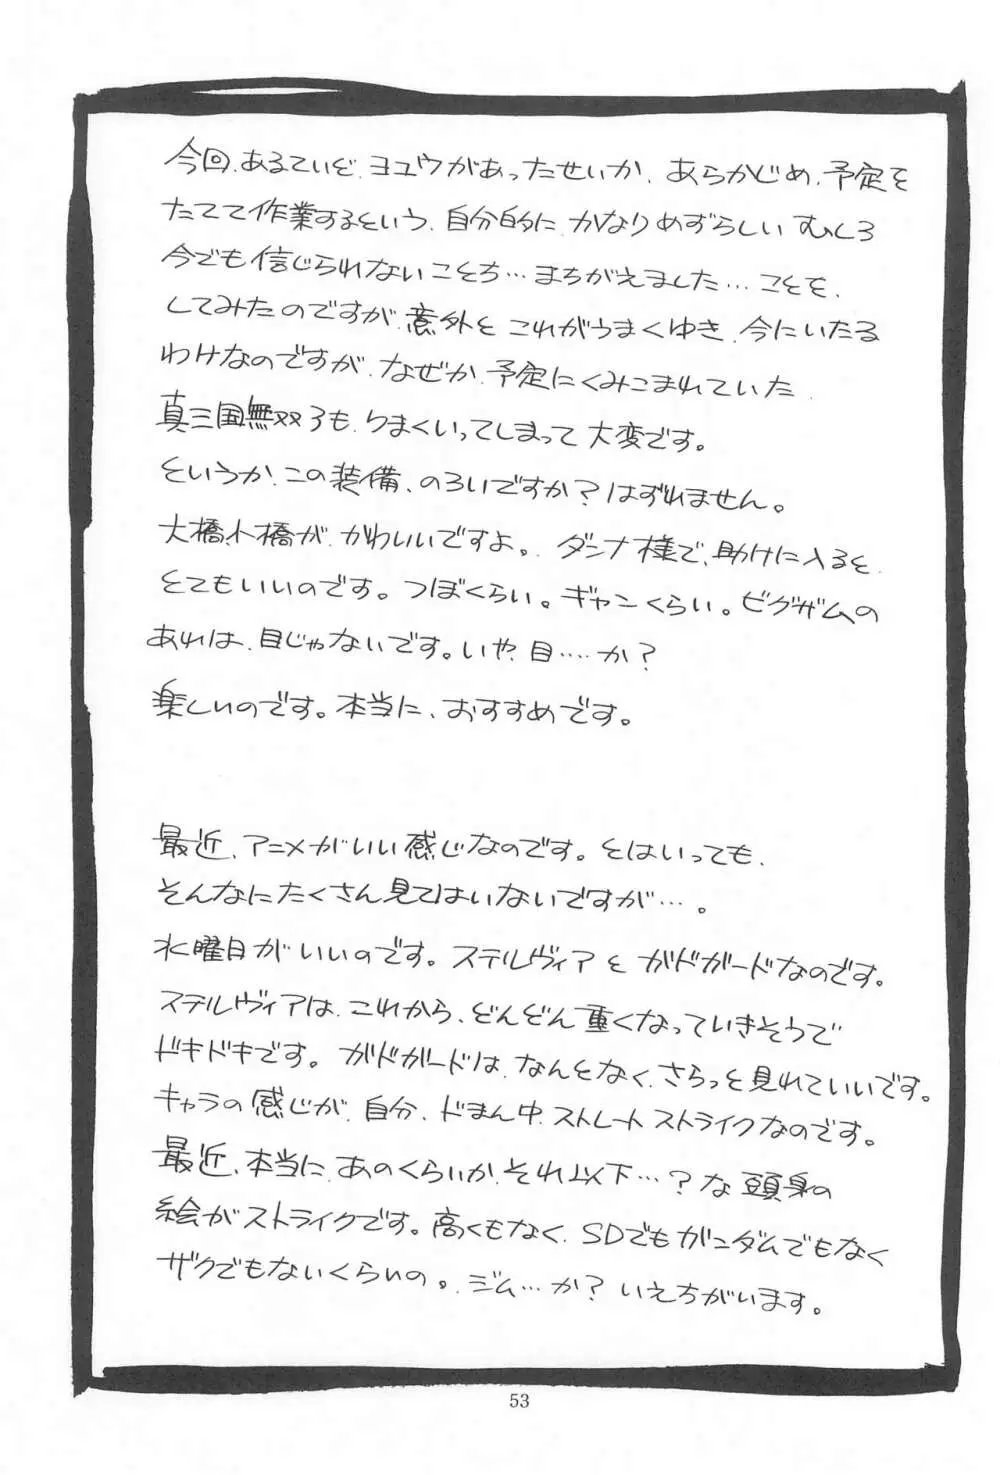 今回、あるていど、ヨユウがあったせいか、あらかじめ、予定を
たてて作業するという、自分的に、かなりめずらしい むしろ
今でも信じられないことち…まちがえました…ことを、
してみたのですが、意外とこれがうまくゆき、今にいたる
わけなのですが、なぜか、予定にくみこまれていた、
真三国無双3も、うまくいってしまって大変です。
というか、この装備、のろいですか？はずれません。
大橋、小橋が、かわいいですよ。、ダンナ様で、助けに入ると、
とてもいいのです。つぼくらい。ギャンくらい。ビグザムの
あれは、目じゃないです。いや、目……か？
楽しいのです。本当に、おすすめです。
最近、アニメがいい感じなのです。とはいっても、
そんなにたくさん見てはいないですが…。
水曜日がいいのです。ステルヴィアとガドガードなのです。
ステルヴィアは、これから、どんどん重くなっていきそうで
ドキドキです。ガドガードは、なんとなく、さらっと見れていいです。
キャラの感じが、自分、ドまん中、ストレートストライクなのです。
最近、本当に、あのくらいか、それ以下…？な頭身の
絵がストライクです。高くもなく、SDでもガンダムでもなく
ザクでもないくらいの。、ジム…か？いえちがいます。
53